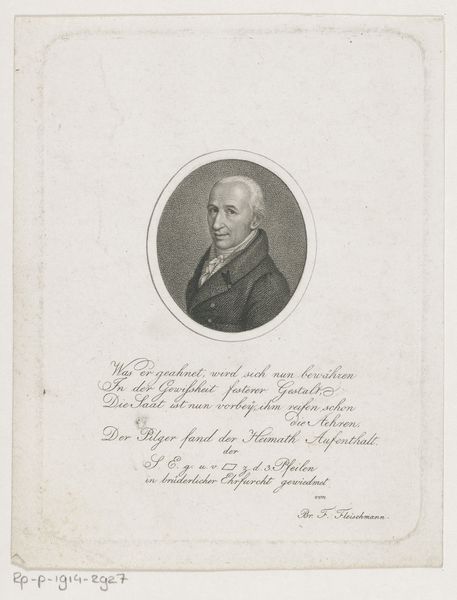 Was er geahnet, wird sich nun bewähren
In der Gewißheit festerer Gestalt,
Die Saat ist nun vorbey, ihm reifen schon
die Aehren.
Der Pilger fand der Heimath Aufenthalt.
der
S. E. g. u. v. ▭ z. d. 3. Pfeilen
in brüderlicher Ehrfurcht gewiedmet
von
Br. F. Fleischmann.
RP-P-1914-2927